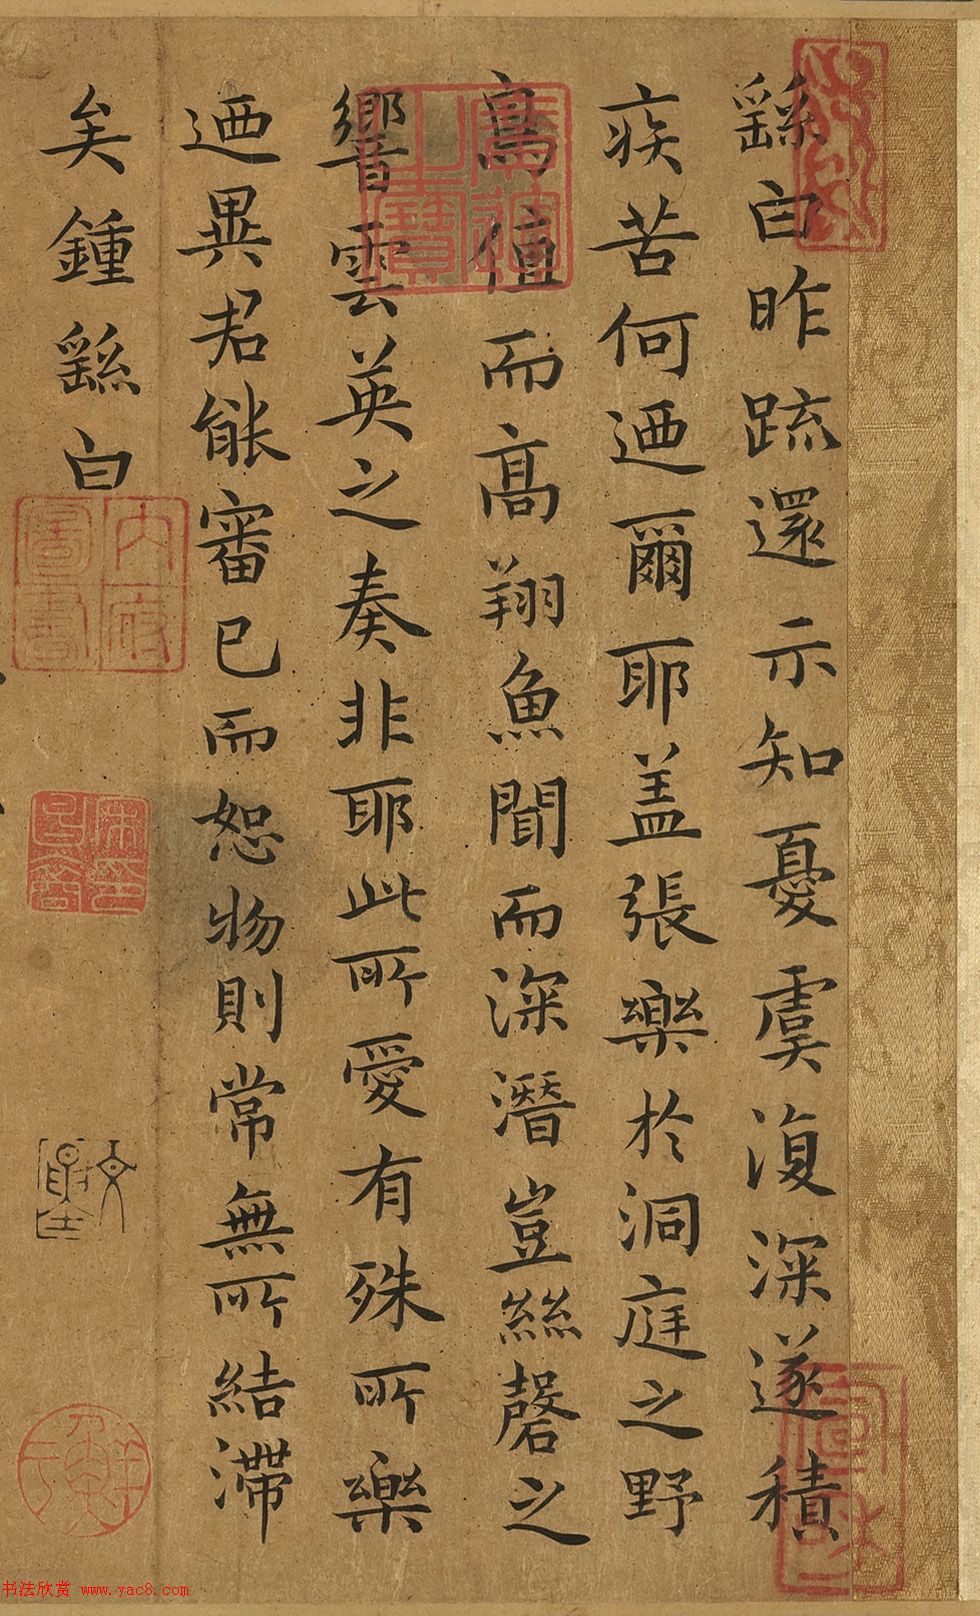 繇白昨疏還示知憂虞復深遂積
疾苦何迺爾耶盖張樂於洞庭之野
鳥值而高翔魚聞而深潛豈絲磬之
響雲英之奏非耶此所愛有殊所樂
迺異君能審己而恕物則常無所結滯
矣鍾繇白
內府
圖書
书法欣赏 www.yac8.com